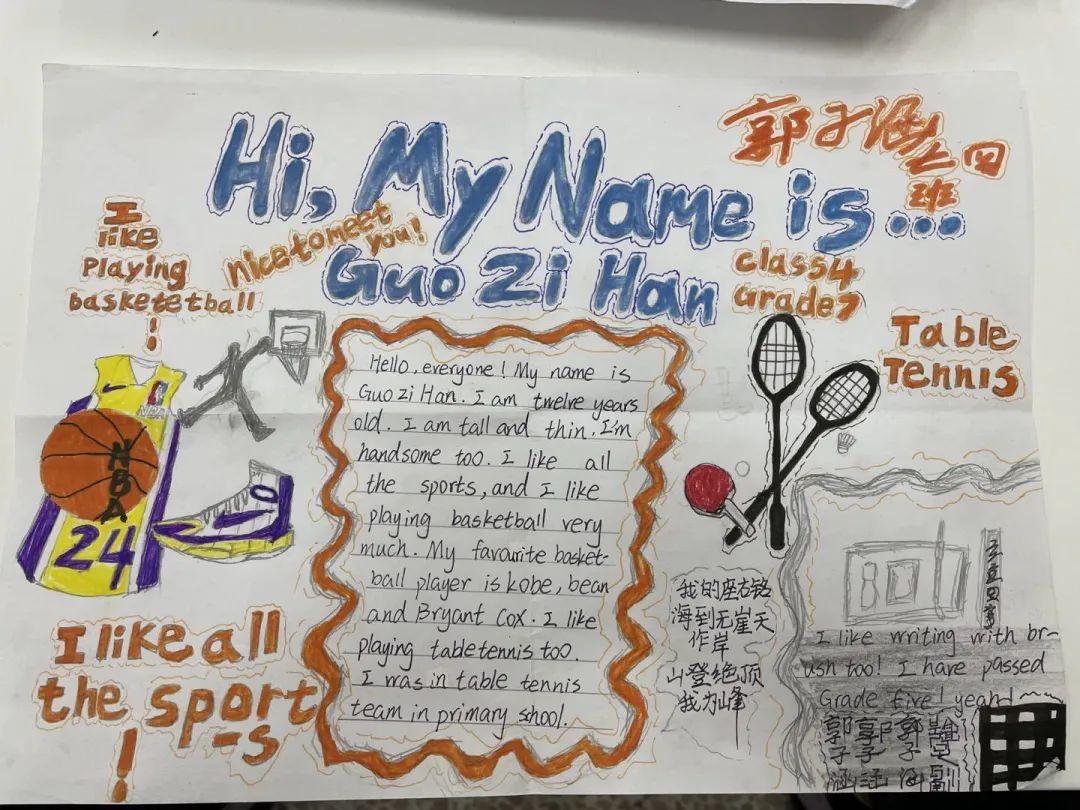 郭子涵
七四
班
Hi, My Name is...
Guo Zi Han
nice to meet
you!
class4
Grade7
I
like
Playing
basketetball
!
NBA
24
I like all
the sport
-s
!
Hello, everyone! My name is
Guo Zi Han. I am twelve years
old. I am tall and thin. I'm
handsome too. I like all
the sports, and I like
playing basketball very
much. My favourite basket-
ball player is kobe, bean
and Bryant Cox. I like
playing tabletennis too.
I was in table tennis
team in primary school.
Table
Tennis
我的座右铭
海到无崖天
作岸
山登绝顶
我为峰
I like writing with br-
ush too! I have passed
Grade five! yeah!
郭郭郭
子子子
涵涵涵